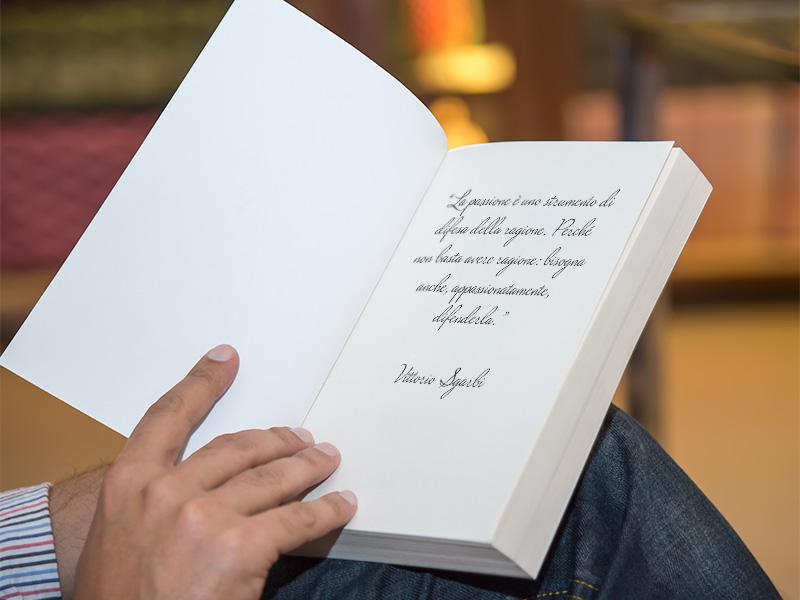 "La passione è uno strumento di
difesa della ragione. Perché
non basta avere ragione: bisogna
anche, appassionatamente,
difenderla."
Vittorio Sgarbi